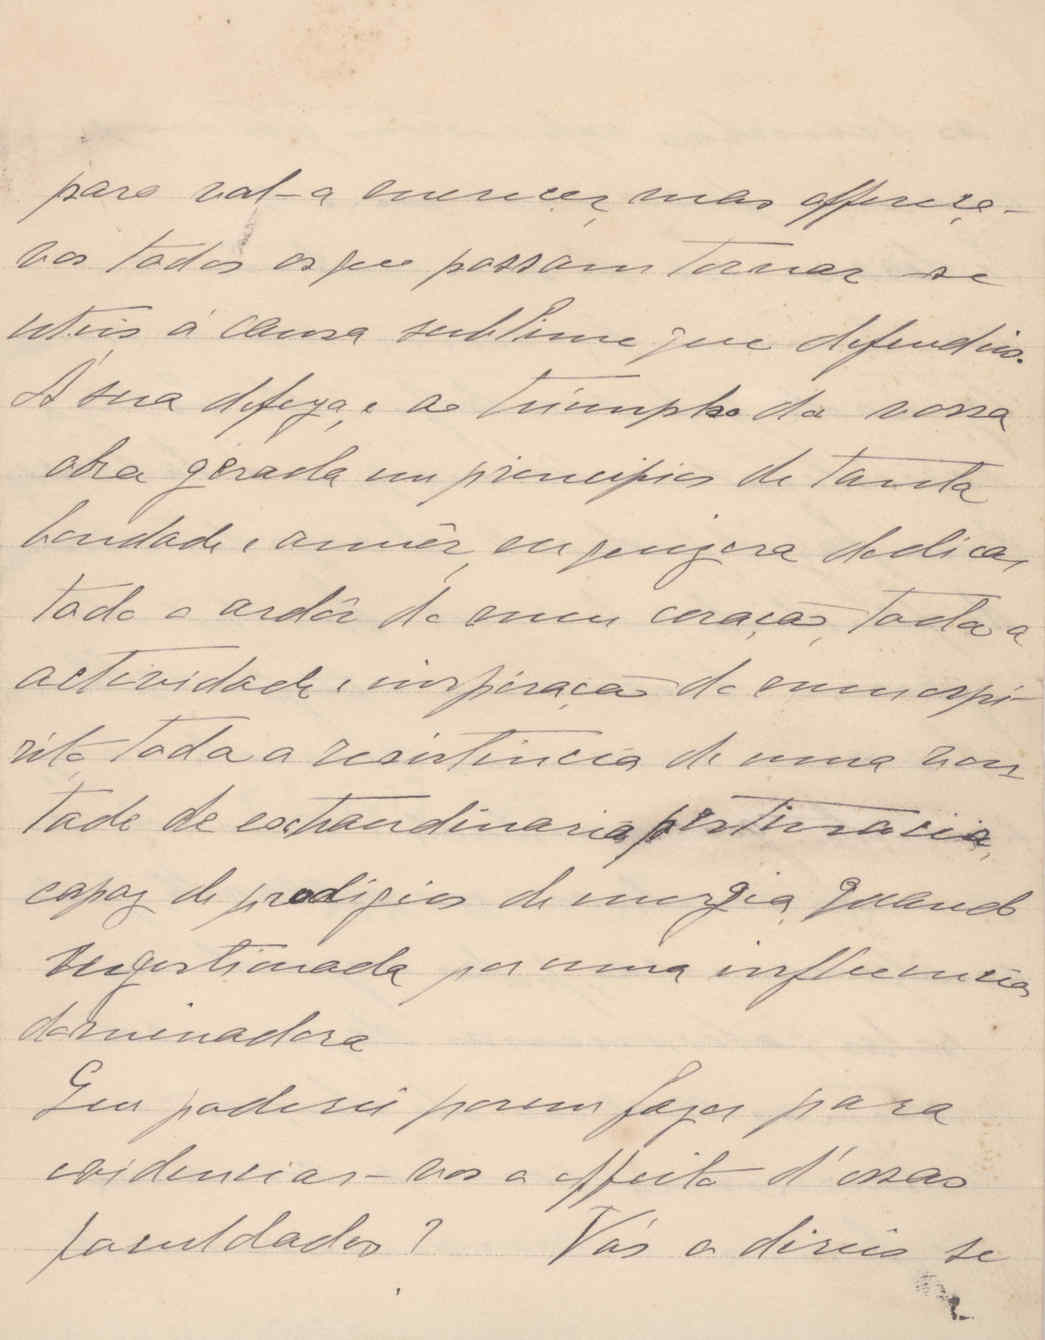 para val-a merecer, mas offereço-
vos todos os que possam tornar-se
uteis á causa sublime que defendeis.
Á sua defeza, e ao triumpho da vossa
obra gerada em principios de tanta
bondade e amôr, eu quizera dedicar
todo o ardôr do meu coração, toda a
actividade e inspiração do meu espi-
rito toda a resistencia de uma von
tade de extraordinaria pertinacia,
capaz de prodigios de energia, quando
sugestionada por uma influencia
dominadora
Que poderei porem fazer para
evidenciar-vos o effeito d'essas
faculdades? Vós o direis se